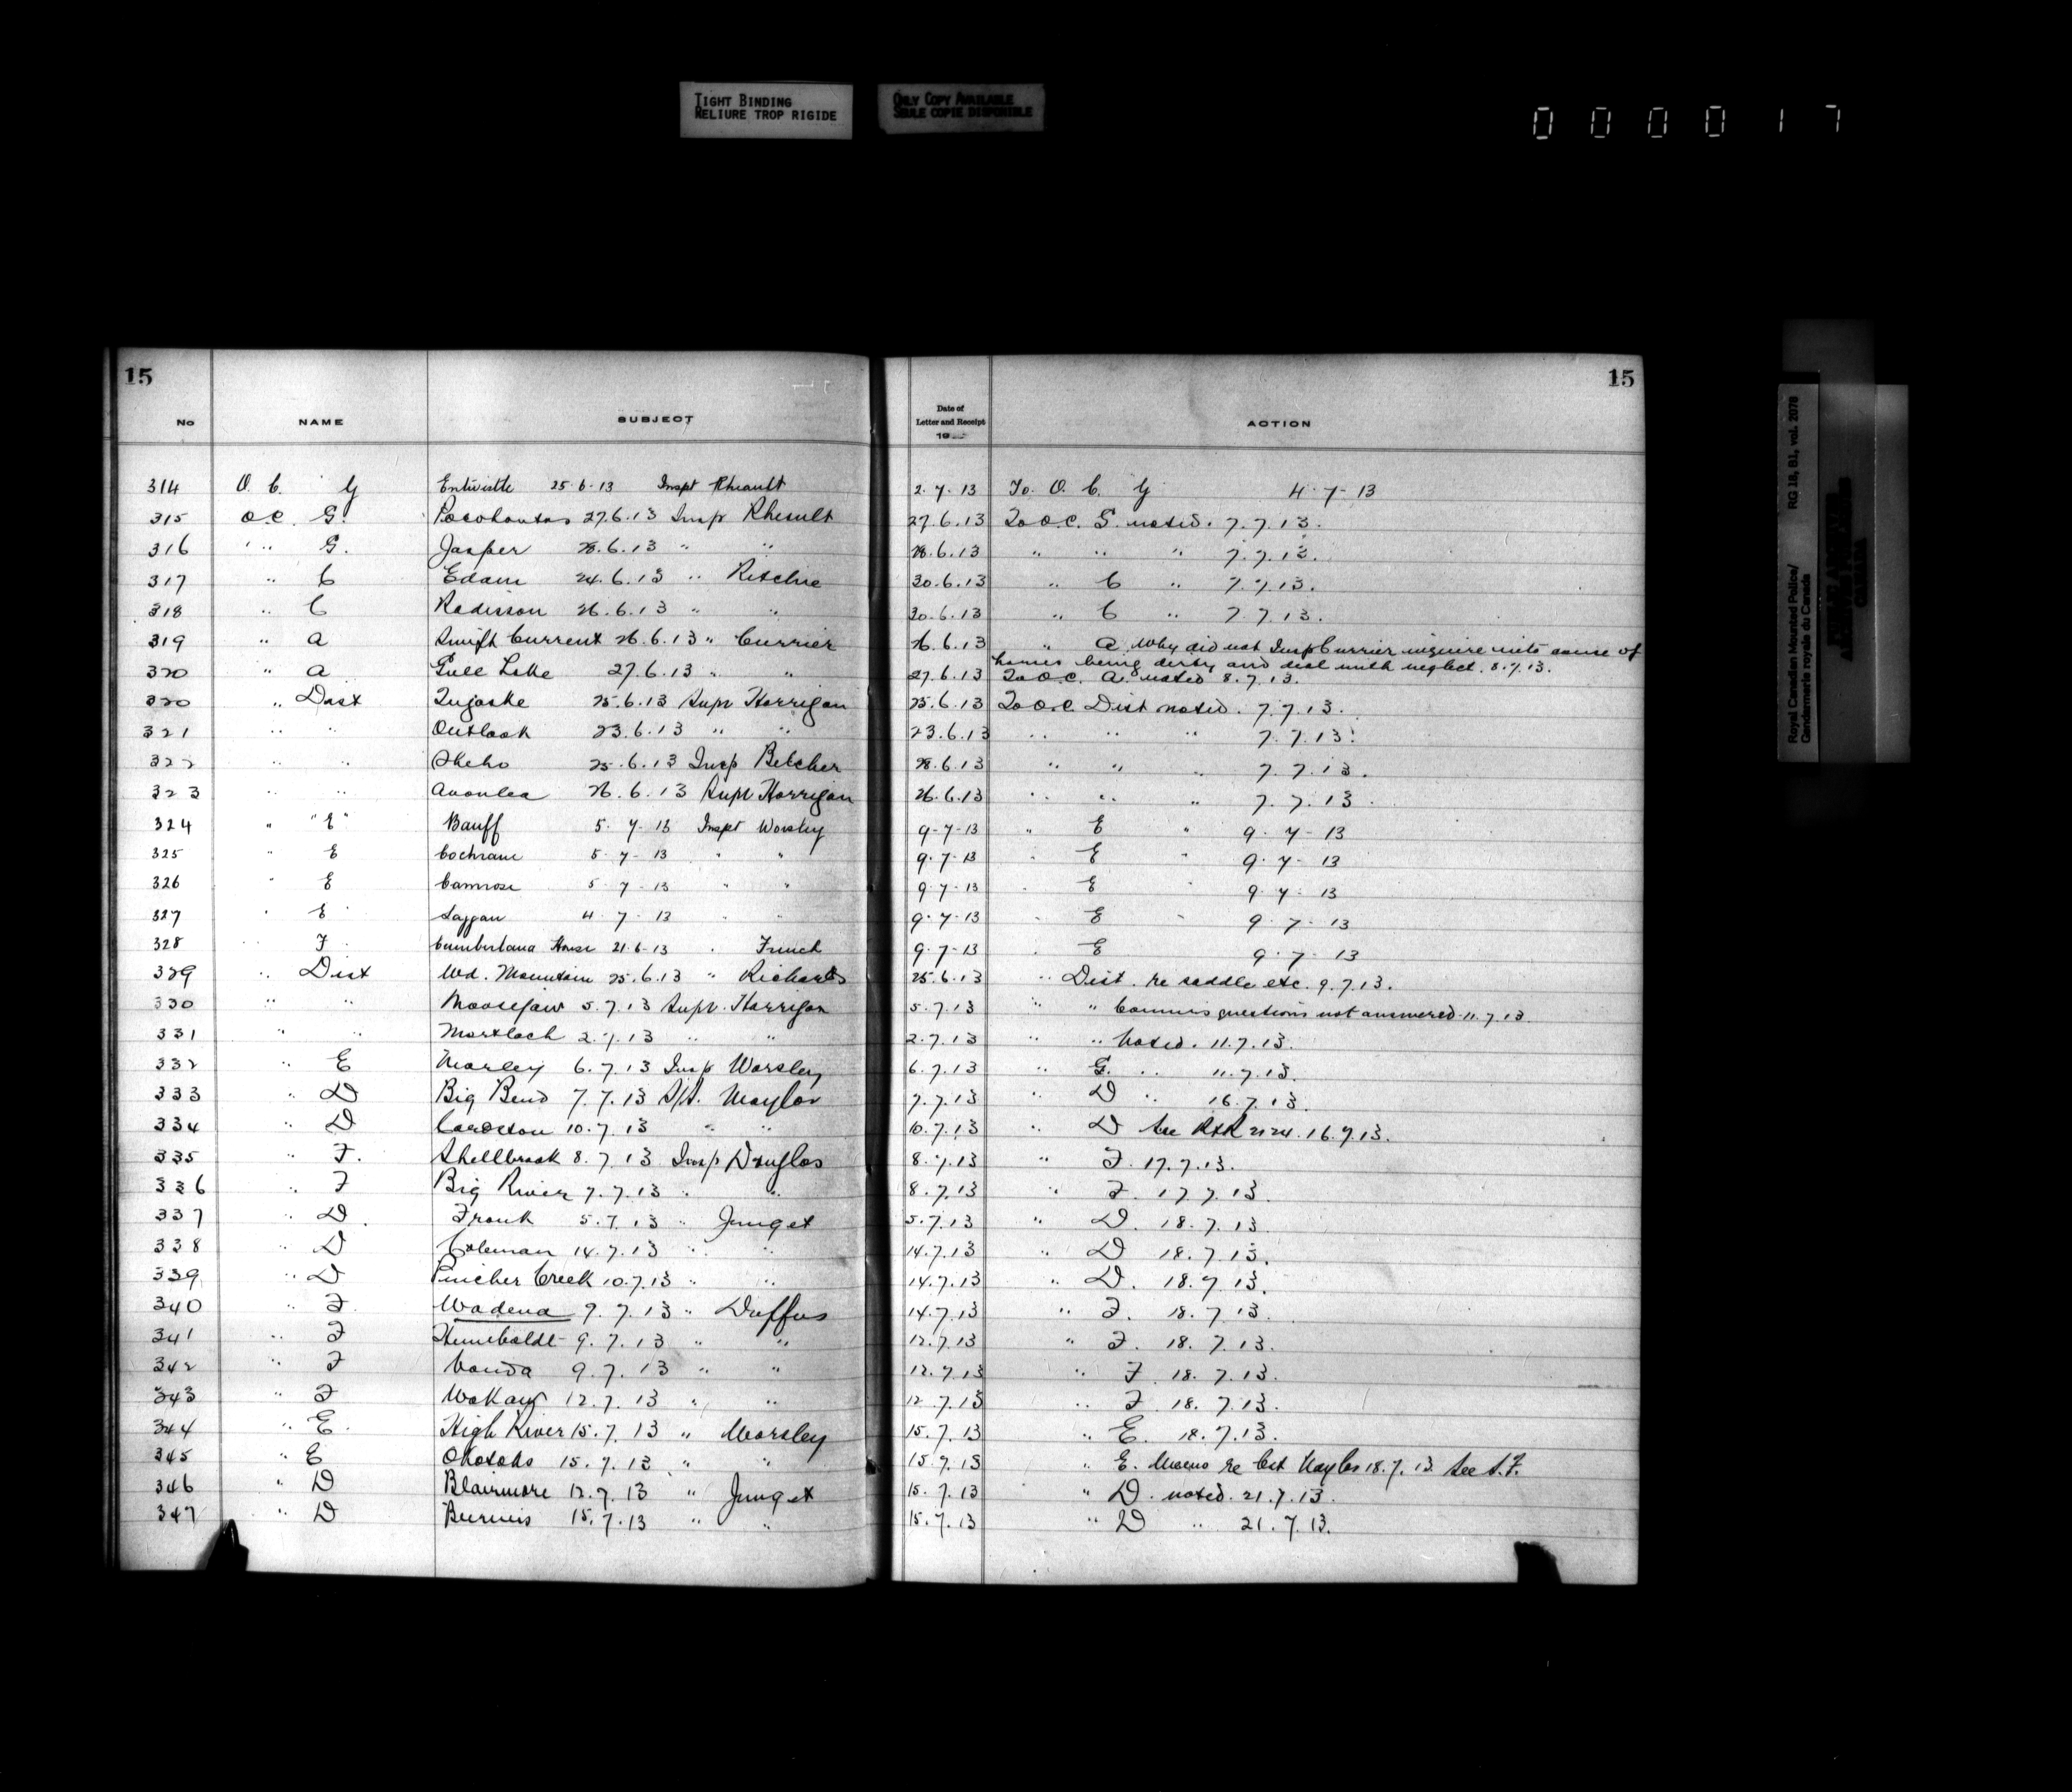 TIGHT BINDING
RELIURE TROP RIGIDE
ONLY COPY AVAILABLE
SEULE COPIE DISPONIBLE
000017
15 15
No NAME SUBJECT Date of Letter and Receipt 19 ACTION
314 O. C. G Entwistle 25-6-13 Inspt Rheault 2-7-13 To. O. C. G 4-7-13
315 O.C. G. Pocohontas 27.6.13 Insp Rheault 27.6.13 To O.C. G. noted. 7.7.13.
316 " " G. Jasper 28.6.13 " " 28.6.13 " " " 7.7.13.
317 " C Edam 24.6.13 " Ritchie 30.6.13 " C " 7.7.13.
318 " C Radisson 26.6.13 " " 30.6.13 " C " 7.7.13.
319 " A Swift Current 26.6.13 " Currier 26.6.13 " A. Why did not Insp Currier inquire into cause of
horses being dirty and deal with neglect. 8.7.13.
320 " A Gull Lake 27.6.13 " " 27.6.13 To O.C. A. noted 8.7.13.
320 " Dist Tugaske 25.6.13 Supt Horrigan 25.6.13 To O.C. Dist noted. 7.7.13.
321 " " Outlook 23.6.13 " " 23.6.13 " " " 7.7.13.
322 " " Sheho 25.6.13 Insp Belcher 28.6.13 " " " 7.7.13.
323 " " Avonlea 26.6.13 Supt Horrigan 26.6.13 " " " 7.7.13.
324 " "E" Banff 5-7-13 Inspt Worsley 9-7-13 " E " 9-7-13
325 " E Cochrane 5-7-13 " " 9-7-13 " E " 9-7-13
326 " E Camrose 5-7-13 " " 9-7-13 " E " 9-7-13
327 " E Laggan 4-7-13 " " 9-7-13 " E " 9-7-13
328 " F Cumberland House 21-6-13 " French 9-7-13 " E 9-7-13
329 " Dist Wd. Mountain 25.6.13 " Richards 25.6.13 " Dist. re saddle etc. 9.7.13.
330 " " Moosejaw 5.7.13 Supt. Horrigan 5.7.13 " " Commrs questions not answered 11.7.13.
331 " " Mortlach 2.7.13 " " 2.7.13 " " Noted. 11.7.13.
332 " E Morley 6.7.13 Insp Worsley 6.7.13 " G. " 11.7.13.
333 " D Big Bend 7.7.13 S/S. Naylor 7.7.13 " D " 16.7.13.
334 " D Cardston 10.7.13 " " 10.7.13 " D See 16.7.13.
335 " F. Shellbrook 8.7.13 Insp Douglas 8.7.13 " F. 17.7.13.
336 " F Big River 7.7.13 " " 8.7.13 " F. 17.7.13.
337 " D. Frank 5.7.13 " Junget 5.7.13 " D. 18.7.13.
338 " D Coleman 14.7.13 " " 14.7.13 " D 18.7.13.
339 " D Pincher Creek 10.7.13 " " 14.7.13 " D. 18.7.13.
340 " F. Wadena 9.7.13 " Duffus 14.7.13 " F. 18.7.13.
341 " F Humboldt 9.7.13 " " 12.7.13 " F. 18.7.13.
342 " F Vonda 9.7.13 " " 12.7.13 " F 18.7.13.
343 " F Wakaw 12.7.13 " " 12.7.13 " F 18.7.13.
344 " E. High River 15.7.13 " Worsley 15.7.13 " E. 18.7.13.
345 " E Okotoks 15.7.13 " " 15.7.13 " E. Memo re Cst 18.7.13. See S.F.
346 " D Blairmore 12.7.13 " Junget 15.7.13 " D. noted. 21.7.13.
347 " D Burmis 15.7.13 " " 15.7.13 " D " 21.7.13.
Royal Canadian Mounted Police/ RG 18, B1, vol. 2078
Gendarmerie royale du Canada